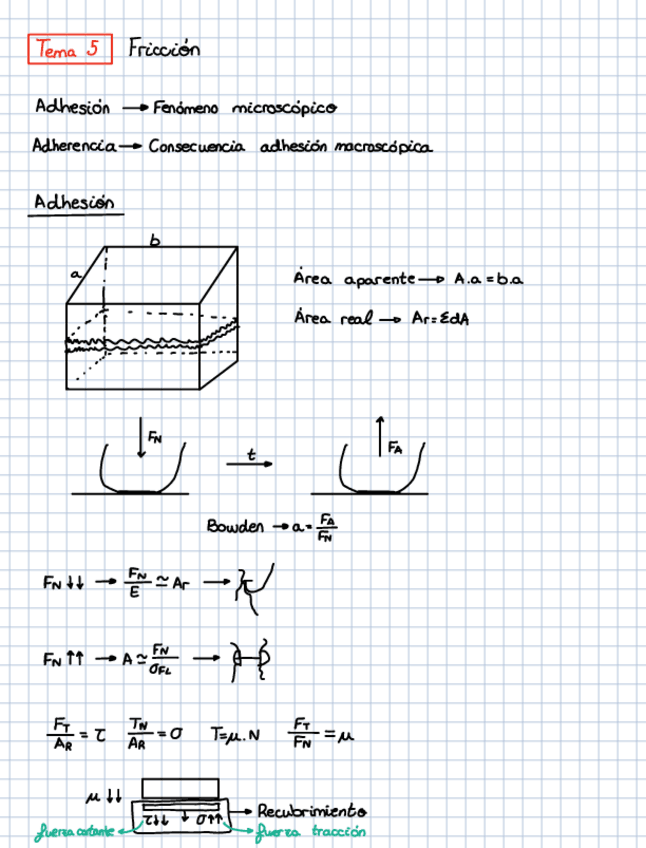 Tema 5 Fricción
Adhesión → Fenómeno microscópico
Adherencia → Consecuencia adhesión macroscópica
Adhesión
b
a
Área aparente → A.a = b.a
Área real → Ar = ΣdA
FN
t
FA
Bowden → a = FA/FN
FN ↓↓ → FN/E ≃ Ar →
FN ↑↑ → A ≃ FN/σFL →
FT/AR = τ TN/AR = σ T=μ.N FT/FN = μ
μ ↓↓
τ↓↓ ↓ σ↑↑
→ Recubrimiento
fuerza cortante
fuerza tracción